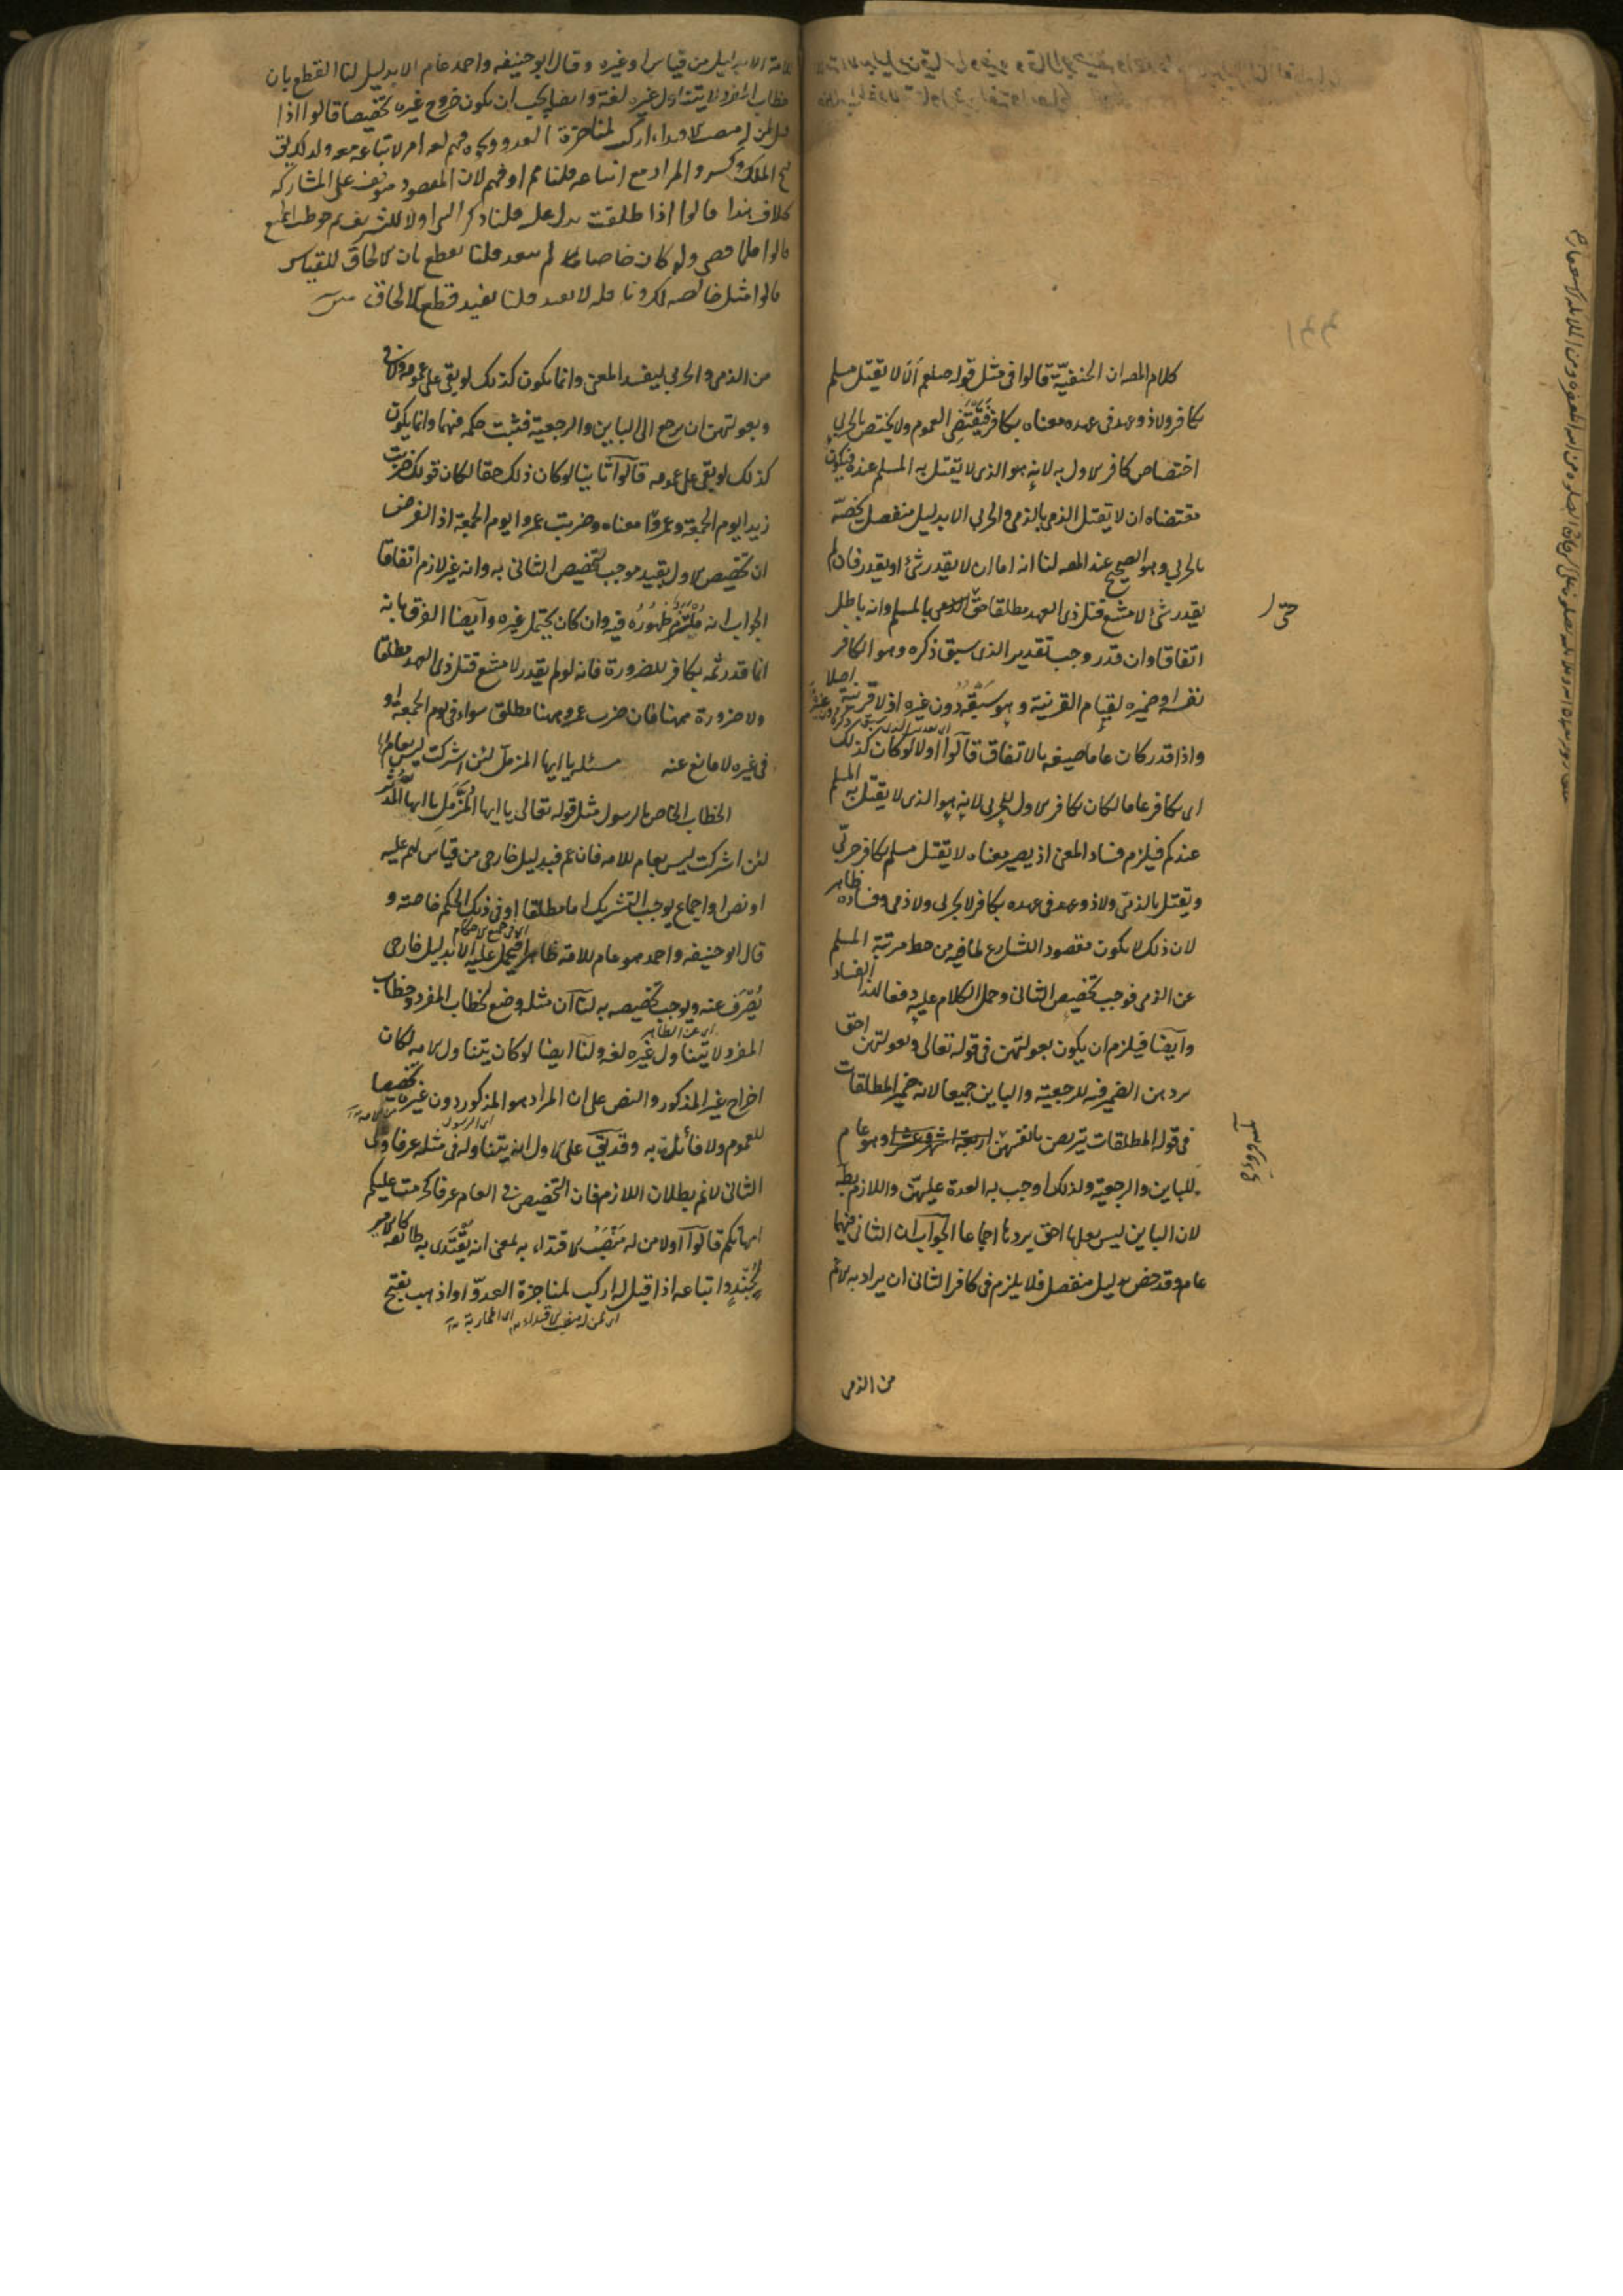 كلام المصه ان الحنفيّة قالوا فى مثل قوله صلعم ألا لا يقتل مسلم
بكافر ولا ذو عهد فى عهده معناه بكافر فيقتضى العموم ولا يختص بالحربى
اختصاص كافر الاول به لانه هو الذى لا يقتل به المسلم عنده فيكون
مقتضاه ان لا يقتل الذمى بالذمى والحربى الا بدليل منفصل يخصّه
بالحربى وهو الصحيح عند المصه لنا انه اما ان لا يقدر شئ او يقدر فان لم
يقدر شئ لامتنع قتل ذى العهد مطلقا حتى بالمسلم وانه باطل
اتفاقا وان قدر وجب تقدير الذى سبق ذكره وهو الكافر
نفسه او ضميره لقيام القرينة وهو سَبْقُه دُون غيره اذ لا قرينة اصلا
واذا قدر كان عاما صيغه بالاتفاق قالوا اولا لو كان كذلك
اى بكافر عاما لكان بكافر الاول للحربى لانه هو الذى لا يقتل به المسلم
عندكم فيلزم فساد المعنى اذ يصير معناه لا يقتل مسلم بكافر حربىّ
ويقتل بالذمىّ ولا ذو عهد فى عهده بكافر لا بحربى ولا ذمى وفساده ظاهر
لان ذلك لا يكون مقصود الشارع لما فيه من حط مرتبة المسلم
عن الذمى فوجب تخصيص الثانى وحمل الكلام عليه دفعا لهذا الفساد
وأيضا فيلزم ان يكون بعولتهن فى قوله تعالى وبعولتهن احق
بردهن الضمير فيه للرجعية والباين جميعا لانه ضمير المطلقات
فى قوله المطلقات يتربصن بانفسهن اربعة اشهر وعشرا وهو عام
للباين والرجعية ولذلك اوجب به العدة عليهن واللازم بط
لان الباين ليس بعلها احق بردها اجماعا الجواب ان الثانى فيهما
عام وقد خص بدليل منفصل فلا يلزم فى كافر الثانى ان يراد به الاعم
من الذمى
حتى
للامة الا بدليل من قياس او غيره وقال ابو حنيفه واحمد عام الا بدليل لنا القطع بان
خطاب المفرد لا يتناول غيره لغة وايضا يجب ان يكون خروج غيره تخصيصا قالوا اذا
قيل لمن له منصب الاقتداء اركب لمناجزة العدو ونحوه فهم لغه امر لاتباعه معه ولذلك يق
فتح الملك وكسر والمراد مع اتباعه قلنا مم او فهم لان المقصود متوقف على المشاركة
بخلاف هذا قالوا اذا طلقتم يدل عليه قلنا ذكر النبى اولا للتشريف ثم خوطب الجميع
قالوا فلما قضى ولو كان خاصا لم يتعد قلنا نقطع بان الالحاق للقياس
قالوا مثل خالصه لك ونا فله لا يفيد قلنا يفيد قطع الالحاق
من الذمى والحربى ليفسد المعنى وانما يكون كذلك لو بقى على عمومه ولا فى
وبعولتهن ان يرجع الى الباين والرجعية فثبت حكمه فيهما وانما يكون
كذلك لو بقى على عمومه قالوا ثانيا لو كان ذلك حقا لكان قولك ضربت
زيدا يوم الجمعة وعمروًا معناه وضربت عمروا يوم الجمعة اذ الفرض
ان تخصيص الاول بقيد موجب لتخصيص الثانى به وانه غير لازم اتفاقا
الجواب انه ملتزم ظهوره فيه وان كان يحتمل غيره وأيضا الفرق بانه
انما قدر ثمه بكافر للضرورة فانه لو لم يقدر لامتنع قتل ذى العهد مطلقا
ولا ضرورة ههنا فان ضرب عمرو ههنا مطلق سواء فى يوم الجمعة او
فى غيره لا مانع عنه مسئلة يا ايها المزمل لئن اشركت ليس بعام
الخطاب الخاص بالرسول مثل قوله تعالى يا ايها المُزَّمِل يا ايها المدَّثر
لئن اشركت ليس بعام للامه فان عم فبدليل خارجى من قياس لهم عليه
او نص او اجماع يوجب التشريك اما مطلقا او فى ذلك الحكم خاصة و
قال ابو حنيفه واحمد هو عام للامة ظاهرا فيحمل عليه الا بدليل خارجى
يُصرَف عنه ويوجب تخصيصه به لنا ان مثله وضع لخطاب المفرد وخطاب
اى عن الظاهر
المفرد لا يتناول غيره لغه ولنا ايضا لو كان يتناول الامه لكان
اخراج غير المذكور والنص على ان المراد هو المذكور دون غيره تخصيصا
للعموم ولا قائل به وقد يق على الاول انه يتناوله فى مثله عرفا وعلى
الثانى لانم بطلان اللازم فان التخصيص فى العام عرفا كحرمت عليكم
امهاتكم قالوا اولا من له مَنْصَبُ الاقتداء به لمعنى انه يُقتَدى به طائفه كالامير
لجُندٍ واتباعه اذا قيل له اركب لمناجزة العدوّ او اذهب بفتح
اى لمن له منصب الاقتداء اى المحاربة